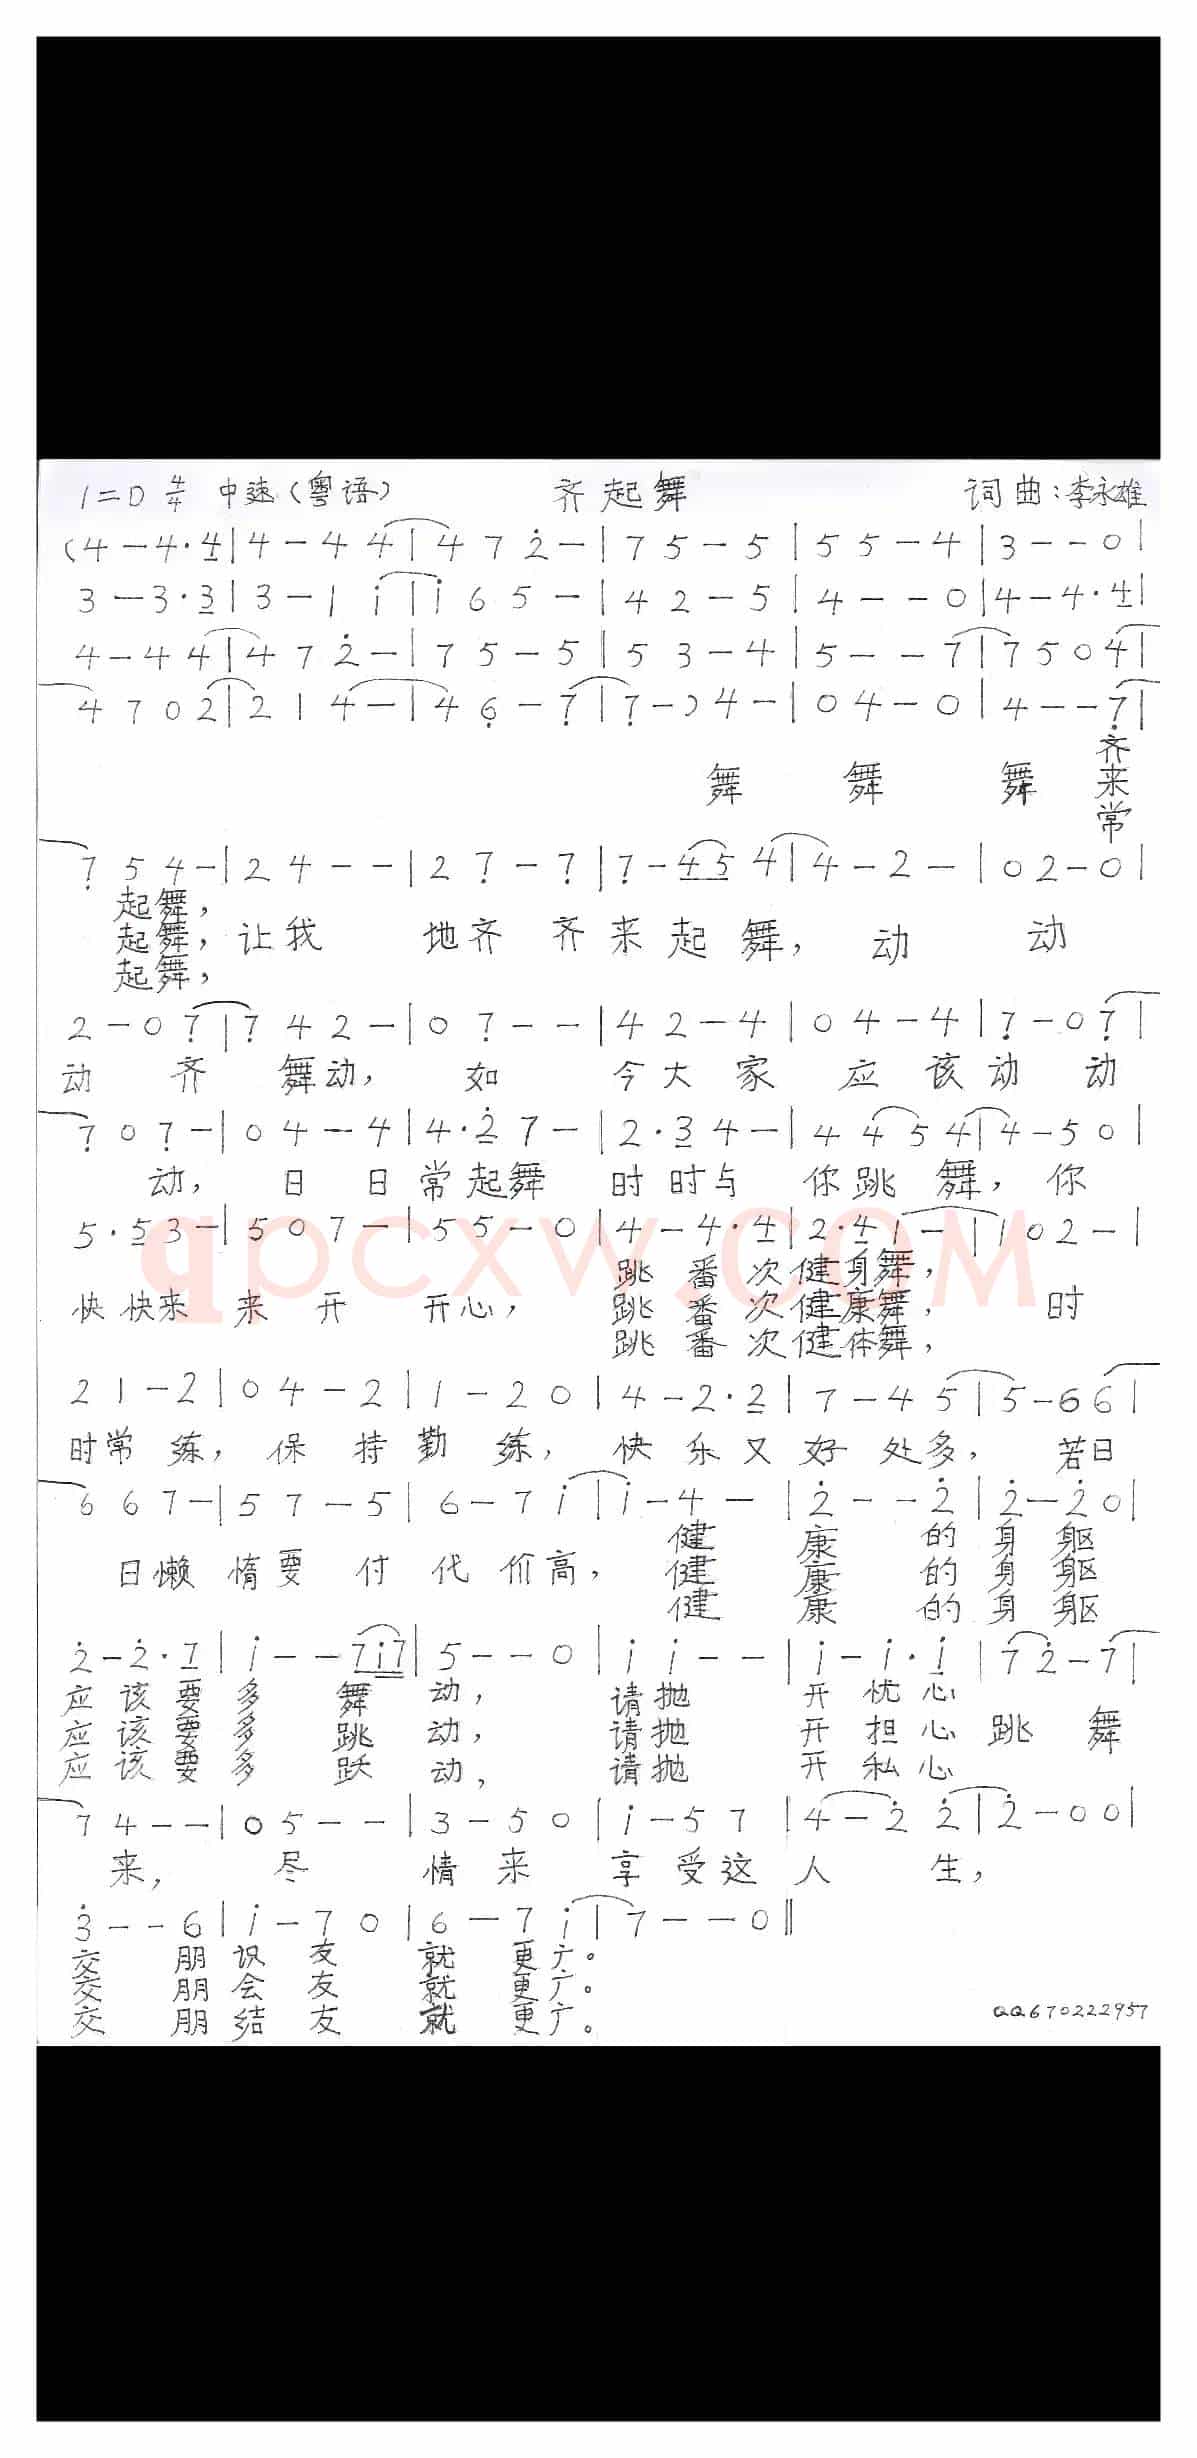 1=D 4/4 中速(粤语) 齐起舞 词曲:李永雄
(4 — 4· 4 | 4 — 4 4 | 4 7 2 — | 7 5 — 5 | 5 5 — 4 | 3 — — 0 |
3 — 3· 3 | 3 — 1 i | i 6 5 — | 4 2 — 5 | 4 — — 0 | 4 — 4· 4 |
4 — 4 4 | 4 7 2 — | 7 5 — 5 | 5 3 — 4 | 5 — — 7 | 7 5 0 4 |
4 7 0 2 | 2 1 4 — | 4 6 — 7 | 7 —) 4 — | 0 4 — 0 | 4 — — 7 |
舞 舞 舞 齐
来
常
7 5 4 — | 2 4 — — | 2 7 — 7 | 7 — 4 5 4 | 4 — 2 — | 0 2 — 0 |
起舞,
起舞, 让我 地齐 齐来起舞, 动 动
起舞,
2 — 0 7 | 7 4 2 — | 0 7 — — | 4 2 — 4 | 0 4 — 4 | 7 — 0 7 |
动 齐 舞动, 如 今大家 应该动 动
7 0 7 — | 0 4 — 4 | 4· 2 7 — | 2· 3 4 — | 4 4 5 4 | 4 — 5 0 |
动, 日 日常起舞 时时与 你跳舞, 你
5· 5 3 — | 5 0 7 — | 5 5 — 0 | 4 — 4· 4 | 2· 4 1 — | 1 0 2 — |
跳番次健身舞,
快快来 来 开 开心, 跳番次健康舞, 时
跳番次健体舞,
2 1 — 2 | 0 4 — 2 | 1 — 2 0 | 4 — 2· 2 | 7 — 4 5 | 5 — 6 6 |
时常练, 保持勤练, 快乐又好处多, 若日
6 6 7 — | 5 7 — 5 | 6 — 7 i | i — 4 — | 2 — — 2 | 2 — 2 0 |
健 康 的身躯
日懒惰要付代价高, 健 康 的身躯
健 康 的身躯
2 — 2· 7 | i — — 7 i 7 | 5 — — 0 | i i — — | i — i· i | 7 2 — 7 |
应该要多 舞 动, 请抛 开忧心
应该要多 跳 动, 请抛 开担心跳 舞
应该要多 跃 动, 请抛 开私心
7 4 — — | 0 5 — — | 3 — 5 0 | i — 5 7 | 4 — 2 2 | 2 — 0 0 |
来, 尽 情来 享受这人 生,
3 — — 6 | i — 7 0 | 6 — 7 i | 7 — — 0 ‖
交 朋识友 就更广。
交 朋会友 就更广。
交 朋结友 就更广。
QQ670222957
qpcxw.com